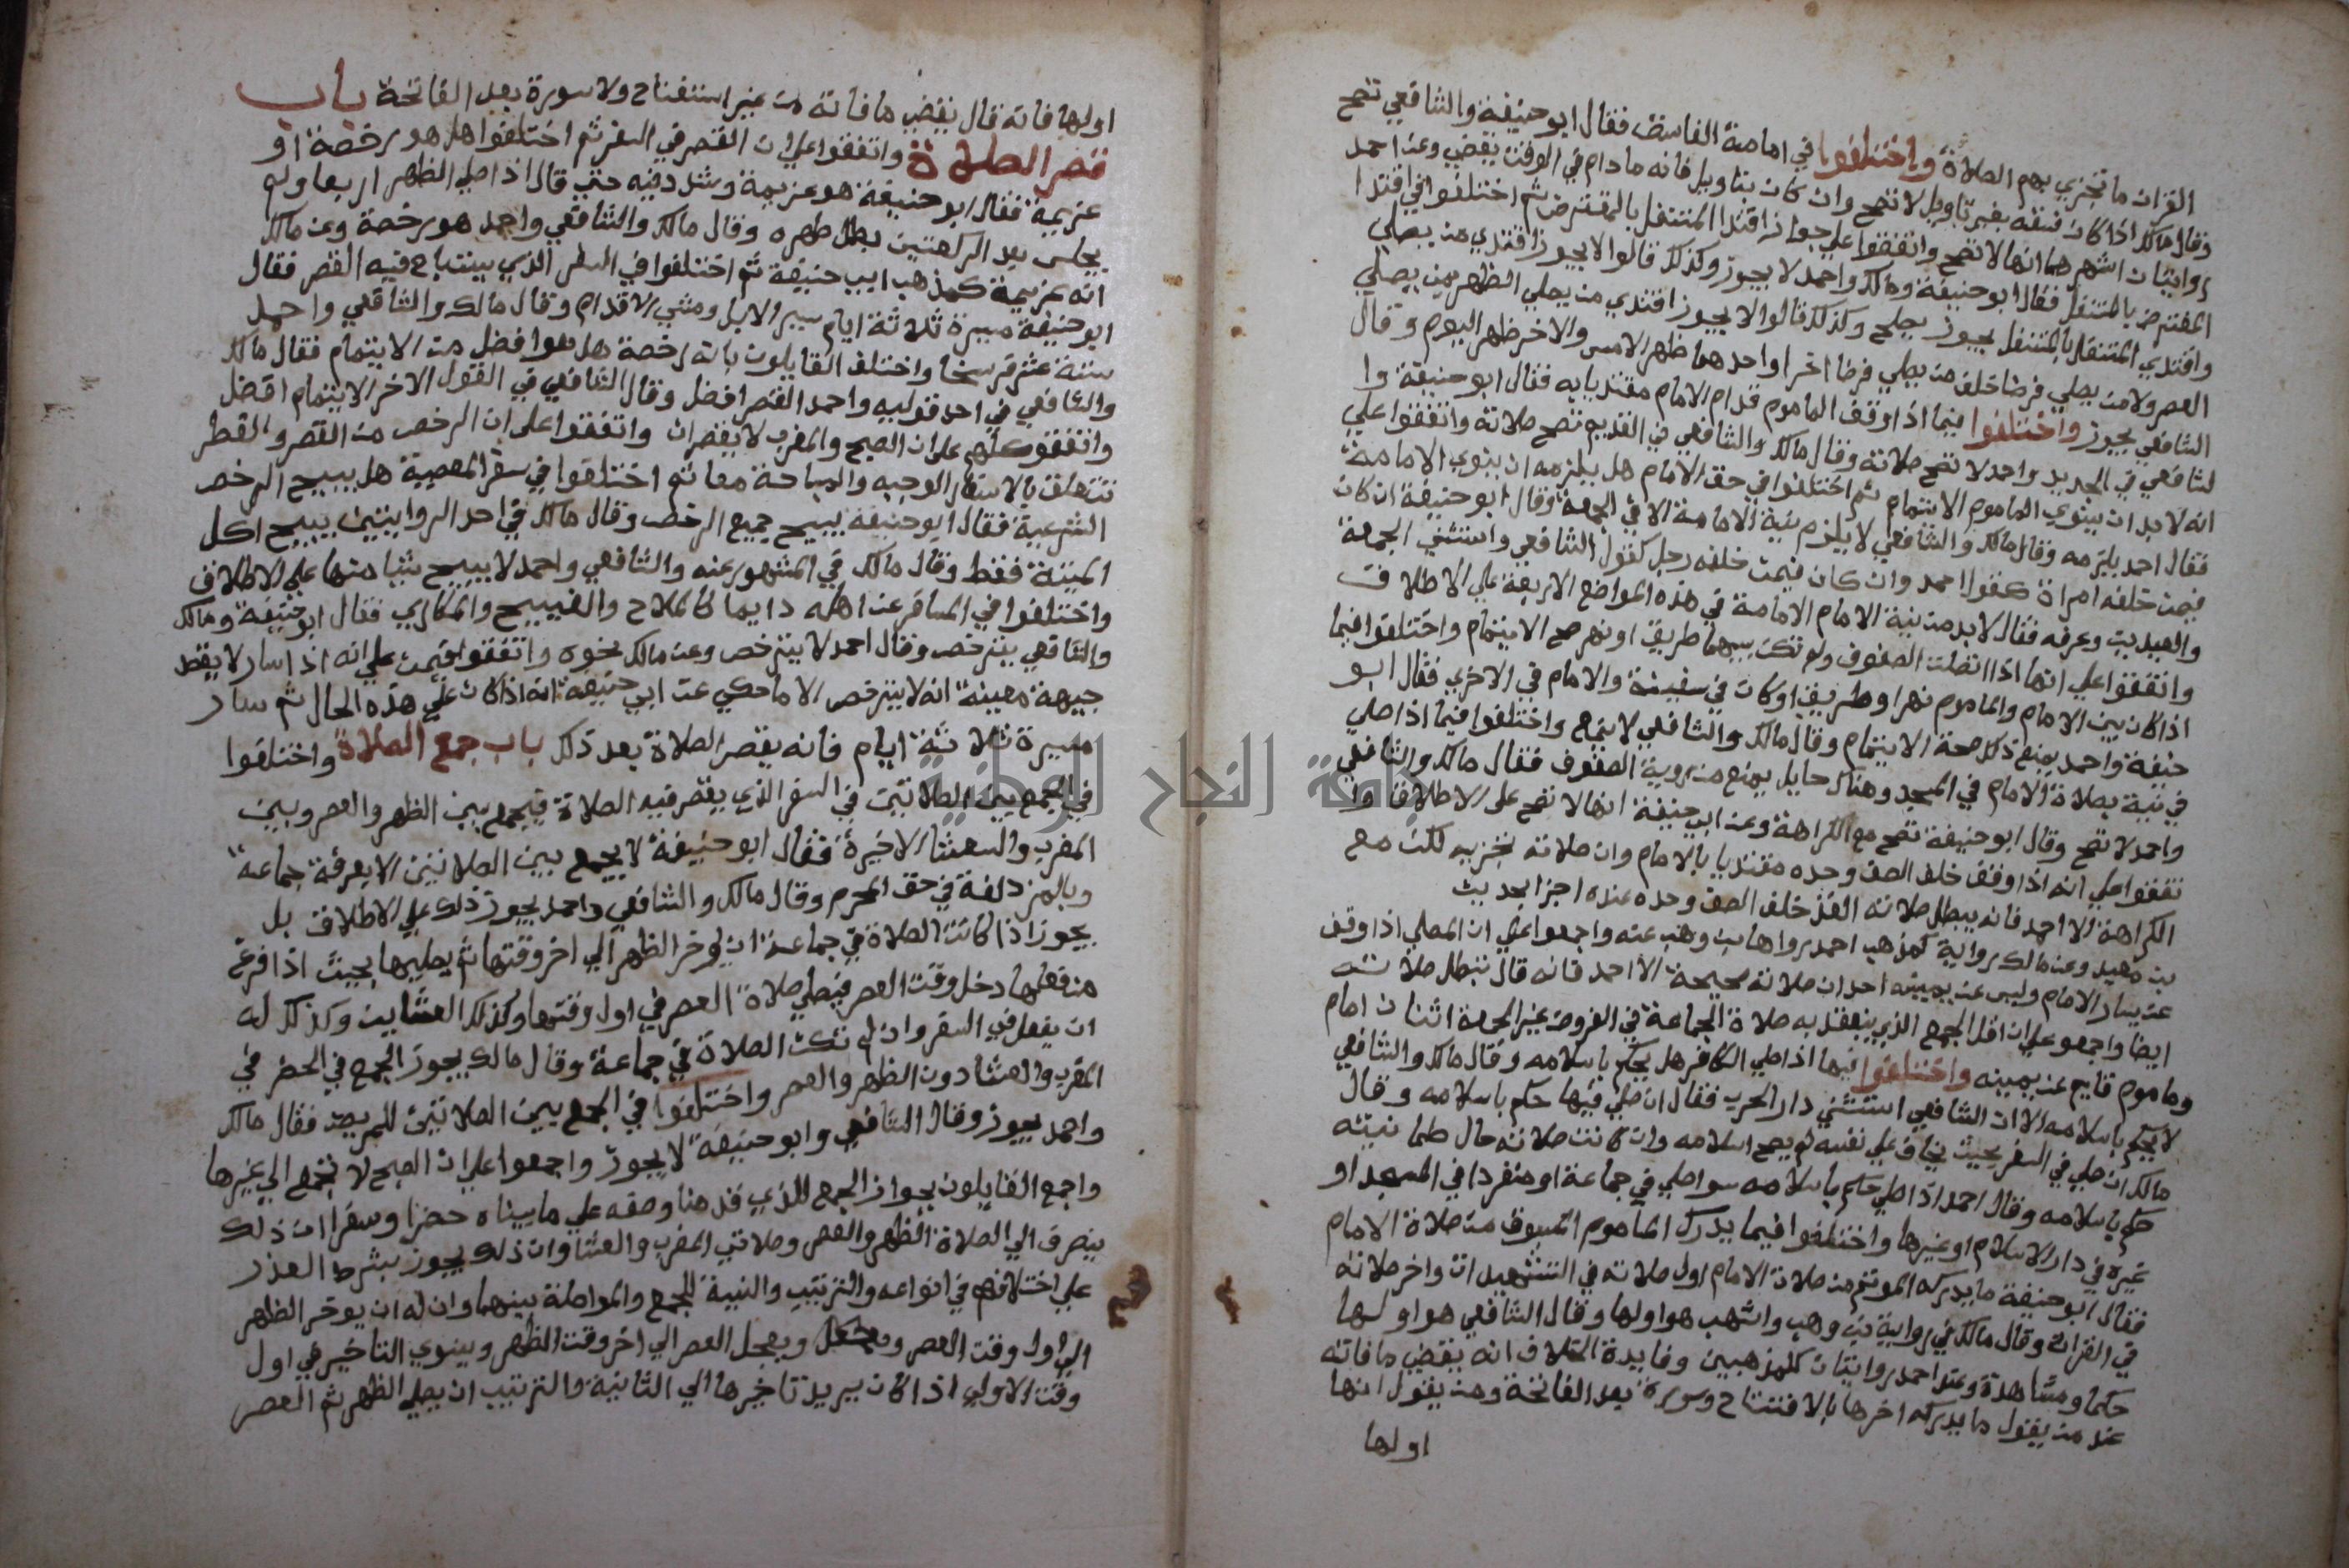 القران ما تجزي بهم الصلاة واختلفوا في امامة الفاسق فقال ابو حنيفة والشافعي تصح
وقال مالك اذا كان فسقه بغير تاويل لا تصح وان كان بتاويل فانه مادام في الوقت يقضي وعن احمد
روايتان اشهرهما انها لا تصح واتفقوا علي جواز اقتدا المتنفل بالمفترض ثم اختلفوا في اقتدا
المفترض بالمتنفل فقال ابو حنيفة ومالك واحمد لا يجوز وكذلك قالوا لا يجوز اقتدي من يصلي
واقتدي المتنفل بالمتنفل يجوز وكذلك قالوا لا يجوز اقتدي من يصلي الظهر بمن يصلي
العصر ولا من يصلي فرضا خلف من يصلي فرضا اخر او احدهما ظهر الامس والاخر ظهر اليوم وقال
الشافعي يجوز واختلفوا فيما اذا وقف الماموم قدام الامام مقتديا به فقال ابو حنيفة وا
لشافعي في الجديد واحمد لا تصح صلاته وقال مالك والشافعي في القديم تصح صلاته واتفقوا علي
انه لا بد ان ينوي الماموم الايتمام ثم اختلفوا في حق الامام هل يلزمه ان ينوي الامامة
فقال احمد يلزمه وقال مالك والشافعي لا يلزم بنية الامامة الا في الجمعة وقال ابو حنيفة ان كان
فيمن خلفه امراة كقول احمد وان كان فيمن خلفه رجل كقول الشافعي واستثني الجمعة
والعيدين وعرفه فقال لا بد من نية الامام الامامة في هذه المواضع الاربعة علي الاطلاق
واتفقوا علي انها اذا اتصلت الصفوف ولم تكن بينهما طريق او نهر صح الايتمام واختلفوا فيما
اذا كان بين الامام والماموم نهرا وطريق او كان في سفينة والامام في الاخري فقال ابو
حنيفة واحمد يمنع ذلك صحة الايتمام وقال مالك والشافعي لا يمنع واختلفوا فيما اذا صلي
في بيته بصلاة الامام في المسجد وهناك حايل يمنع من روية الصفوف فقال مالك والشافعي
واحمد لا تصح وقال ابو حنيفة تصح مع الكراهة وعن ابو حنيفة انها لا تصح علي الاطلاق وا
تفقوا علي انه اذا وقف خلف الصف وحده مقتديا بالامام وان صلاته تجزيه لكن مع
الكراهة الا احمد فانه يبطل صلاته الفذ خلف الصف وحده عنده اجزا لحديث
وعن مالك رواية كمذهب احمد رواها بن وهب عنه واجمعوا علي ان المصلي اذا وقف
عن يسار الامام وليس عن يمينه احد ان صلاته صحيحة الا احمد فانه قال تبطل صلاته
ايضا واجمعو علي ان اقل الجمع الذي ينعقد به صلاة الجماعة في الفروض غير الجمعة اثنان امام
وماموم قايم عن يمينه واختلفوا فيما اذا صلي الكافر هل يحكم باسلامه وقال مالك والشافعي
لا يحكم باسلامه الا ان الشافعي استثني دار الحرب فقال ان صلي فيها حكم باسلامه وقال
مالك ان صلي في السفر بحيث يخاف علي نفسه لم يصح اسلامه وان كانت صلاته حال طمانينه
حكم باسلامه وقال احمد اذا صلي حكم باسلامه سوا صلي في جماعة او منفردا في المسجد او
غيره في دار الاسلام او غيرها واختلفوا فيما يدرك الماموم المسبوق من صلاة الامام
فقال ابو حنيفة ما يدركه الموتم من صلات الامام اول صلاته في التشهيدات واخر صلاته
في القراة وقال مالك في رواية بن وهب واشهب هو اولها وقال الشافعي هو اولها
حكما ومشاهدة وعن احمد روايتان كلمذهبين وفايدة الخلاف انه يقضي ما فاته
عند من يقول ما يدركه اخرها بالافتتاح وسورة بعد الفاتحة ومن يقول انها
اولها
اولها فاته قال يقضي ما فاته من غير استفتاح ولا سورة بعد الفاتحة باب
قصر الصلاة واتفقوا علي ان القصر في السفر ثم اختلفوا هل هو رخصة او
عزيمة فقال ابو حنيفة هو عزيمة وشدد فيه حتي قال اذا صلي الظهر اربعا ولم
يجلس بعد الركعتين بطل ظهره وقال مالك والشافعي واحمد هو رخصة وعن مالك
انه عزيمة كمذهب ابي حنيفة ثم اختلفوا في السفر الذي يستباح فيه القصر فقال
ابو حنيفة مسيرة ثلاثة ايام سير الابل ومشي الاقدام وقال مالك والشافعي واحمد
ستة عشر فرسخا واختلف القايلون بانه رخصة هل هو افضل من الايتمام فقال مالك
والشافعي في احد قوليه واحمد القصر افضل وقال الشافعي في القول الاخر الايتمام افضل
واتفقو كلهم علي ان الصبح والمغرب لا يقصران واتفقوا علي ان الرخص من القصر والفطر
تتعلق بالاسفار الوجبه والمباحة معا ثم اختلفوا في سفر المعصية هل يبيح الرخص
الشرعية فقال ابو حنيفة يبيح جميع الرخص وقال مالك في احد الروايتين يبيح اكل
الميتة فقط وقال مالك في المشهور عنه والشافعي واحمد لا يبيح شيا منها علي الاطلاق
واختلفوا في المسافر عن اهله دايما كالملاح والفيج والمكاري فقال ابو حنيفة ومالك
والشافعي يترخص وقال احمد لا يترخص وعن مالك نحوه واتفقوا فيمن علي انه اذا سار لا يقصد
جيهة معينة انه لا يترخص الا ما حكي عن ابي حنيفة انه اذا كان علي هذه الحال ثم سار
مسيرة ثلاثة ايام فانه يقصر الصلاة بعد ذلك باب جمع الصلاة واختلفوا
في الجمع بين الصلاتين في السفر الذي يقصر فيه الصلاة فيجمع بين الظهر والعصر وبين
المغرب والعشا الاخيرة فقال ابو حنيفة لا يجمع بين الصلاتين الا بعرفة جماعة
وبالمزدلفة في حق المحرم وقال مالك والشافعي واحمد يجوز ذلك علي الاطلاق بل
يجوز اذا كانت الصلاة في جماعة ان يوخر الظهر الي اخر وقتها ثم يصليها بحيث اذا فرغ
من فعلها دخل وقت العصر فيصلي صلاة العصر في اول وقتها وكذلك العشاين وكذلك له
ان يفعل في السفر وان لم تكن الصلاة في جماعة وقال مالك يجوز الجمع في الحضر في
المغرب والعشا دون الظهر والعصر واختلفوا في الجمع بين الصلاتين للمريض فقال مالك
واحمد يجوز وقال الشافعي وابو حنيفة لا يجوز واجمعوا علي ان الصبح لا تجمع الي غيرها
واجمع القايلون بجواز الجمع للذي قدمنا وصفه علي ما بيناه حضرا وسفرا ان ذلك
ينصرف الي الصلاة الظهر والعصر وصلاتي المغرب والعشا وان ذلك يجوز بشرط العذر
علي اختلافهم في انواعه والترتيب والنية للجمع والمواصلة بينهما وان له ان يوخر الظهر
الي اول وقت العصر ويعجل العصر الي اخر وقت الظهر وينوي التاخير في اول
وقت الاولي اذا كان يريد تاخيرها الي الثانية والترتيب ان يصلي الظهر ثم العصر
جامعة النجاح الوطنية